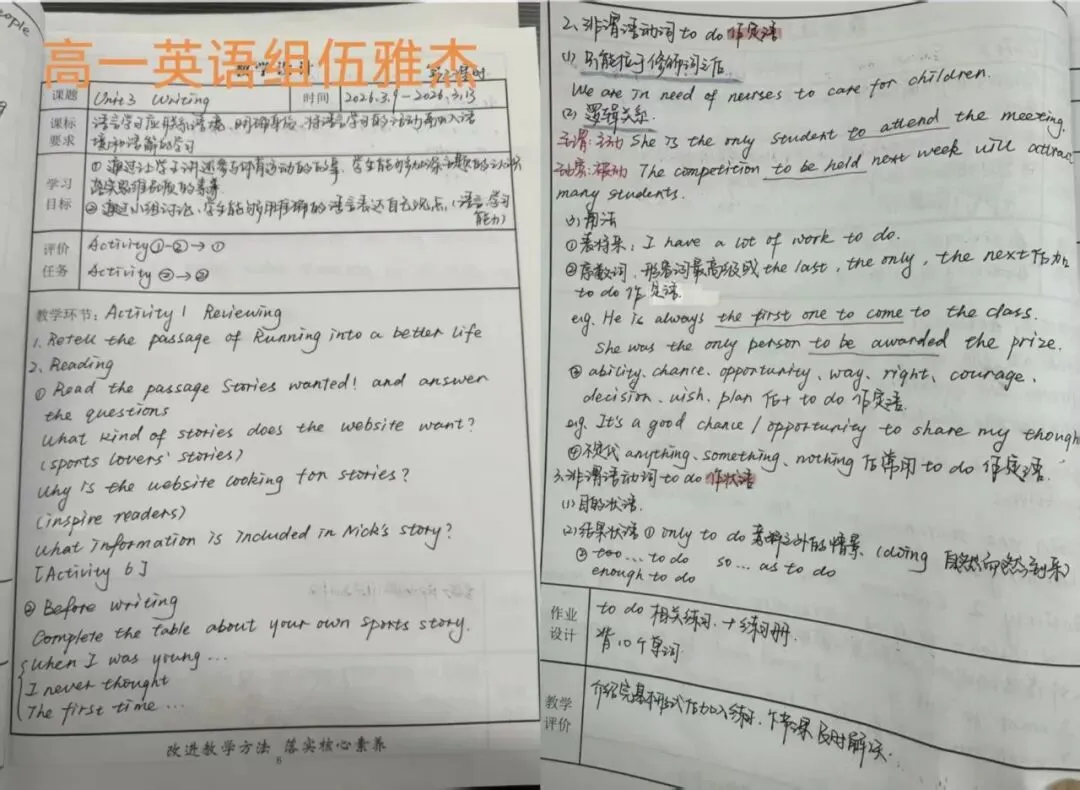 高一英语组伍雅杰
教学设计
课题 Unit 3 Writing 时间 2026.3.9-2026.3.13
课标要求
学习目标
评价任务 Activity①-②→①
Activity ②→②
教学环节: Activity 1 Reviewing
1. Retell the passage of Running into a better life
2. Reading
① Read the passage Stories wanted! and answer
the questions
What kind of stories does the website want?
(sports lovers' stories)
Why is the website looking for stories?
(inspire readers)
What information is included in Nick's story?
[Activity 6]
② Before writing
Complete the table about your own sports story.
When I was young ...
I never thought
The first time ...
改进教学方法 落实核心素养
2、非谓语动词 to do 作定语
(1) 只能位于修饰词之后
We are in need of nurses to care for children.
(2) 逻辑关系
主谓:主动 She is the only student to attend the meeting.
动宾:被动 The competition to be held next week will attract
many students.
(3) 用法
①表将来: I have a lot of work to do.
②序数词、形容词最高级或 the last, the only, the next 后加
to do 作定语
eg. He is always the first one to come to the class.
She was the only person to be awarded the prize.
③ ability、chance、opportunity、way、right、courage、
decision、wish、plan 后+ to do 作定语
eg. It's a good chance / opportunity to share my though
④不定代 anything、something、nothing 后常用 to do 作定语
3、非谓语动词 to do 作状语
(1) 目的状语
(2) 结果状语 ① only to do 意料之外的情景 (doing 自然而然
② too... to do so... as to do
enough to do
作业设计 to do 相关练习 + 练习册
背10个单词
教学评价 介绍完基本形式后加入练习,下节课及时解决.